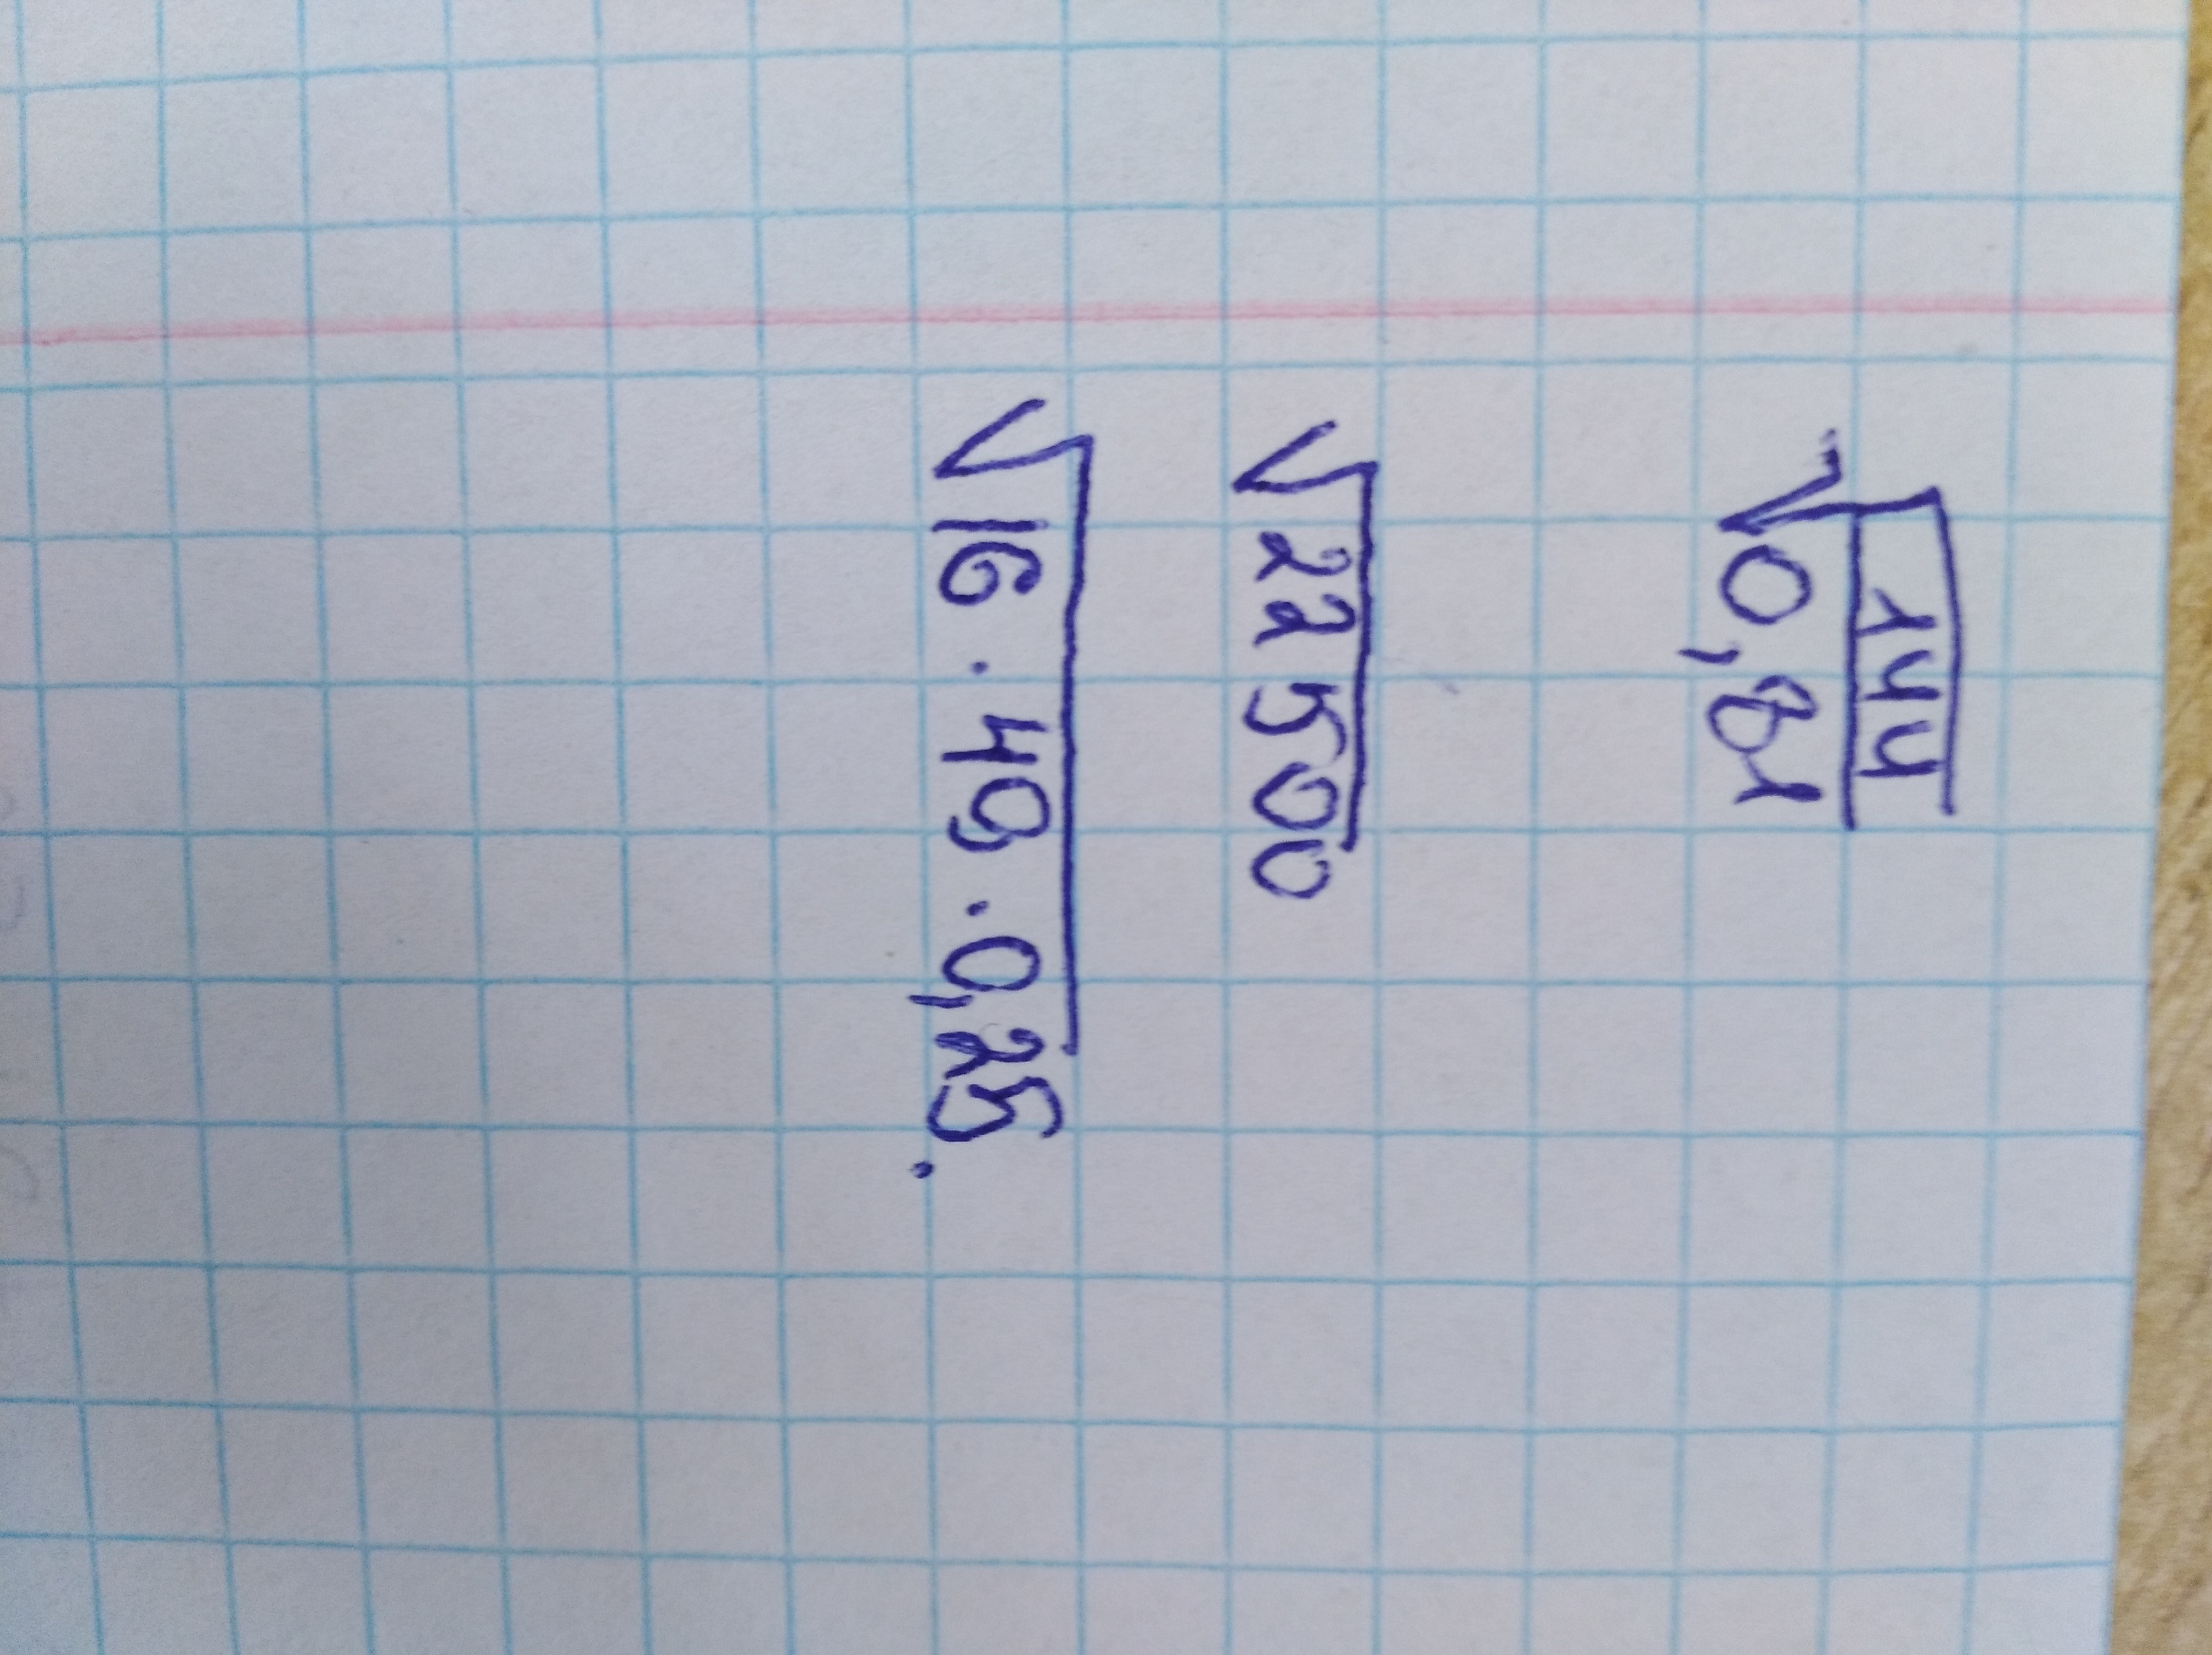 √(144/0,81)
√22500
√16 · 49 · 0,25.